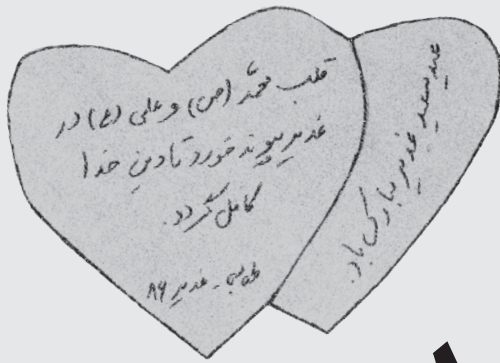 قلب محمّد (ص) و علی (ع) در
غدیر پیوند خورد تا دین خدا
کامل گردد.
غدیر ۸۹
عید سعید غدیر مبارک باد.